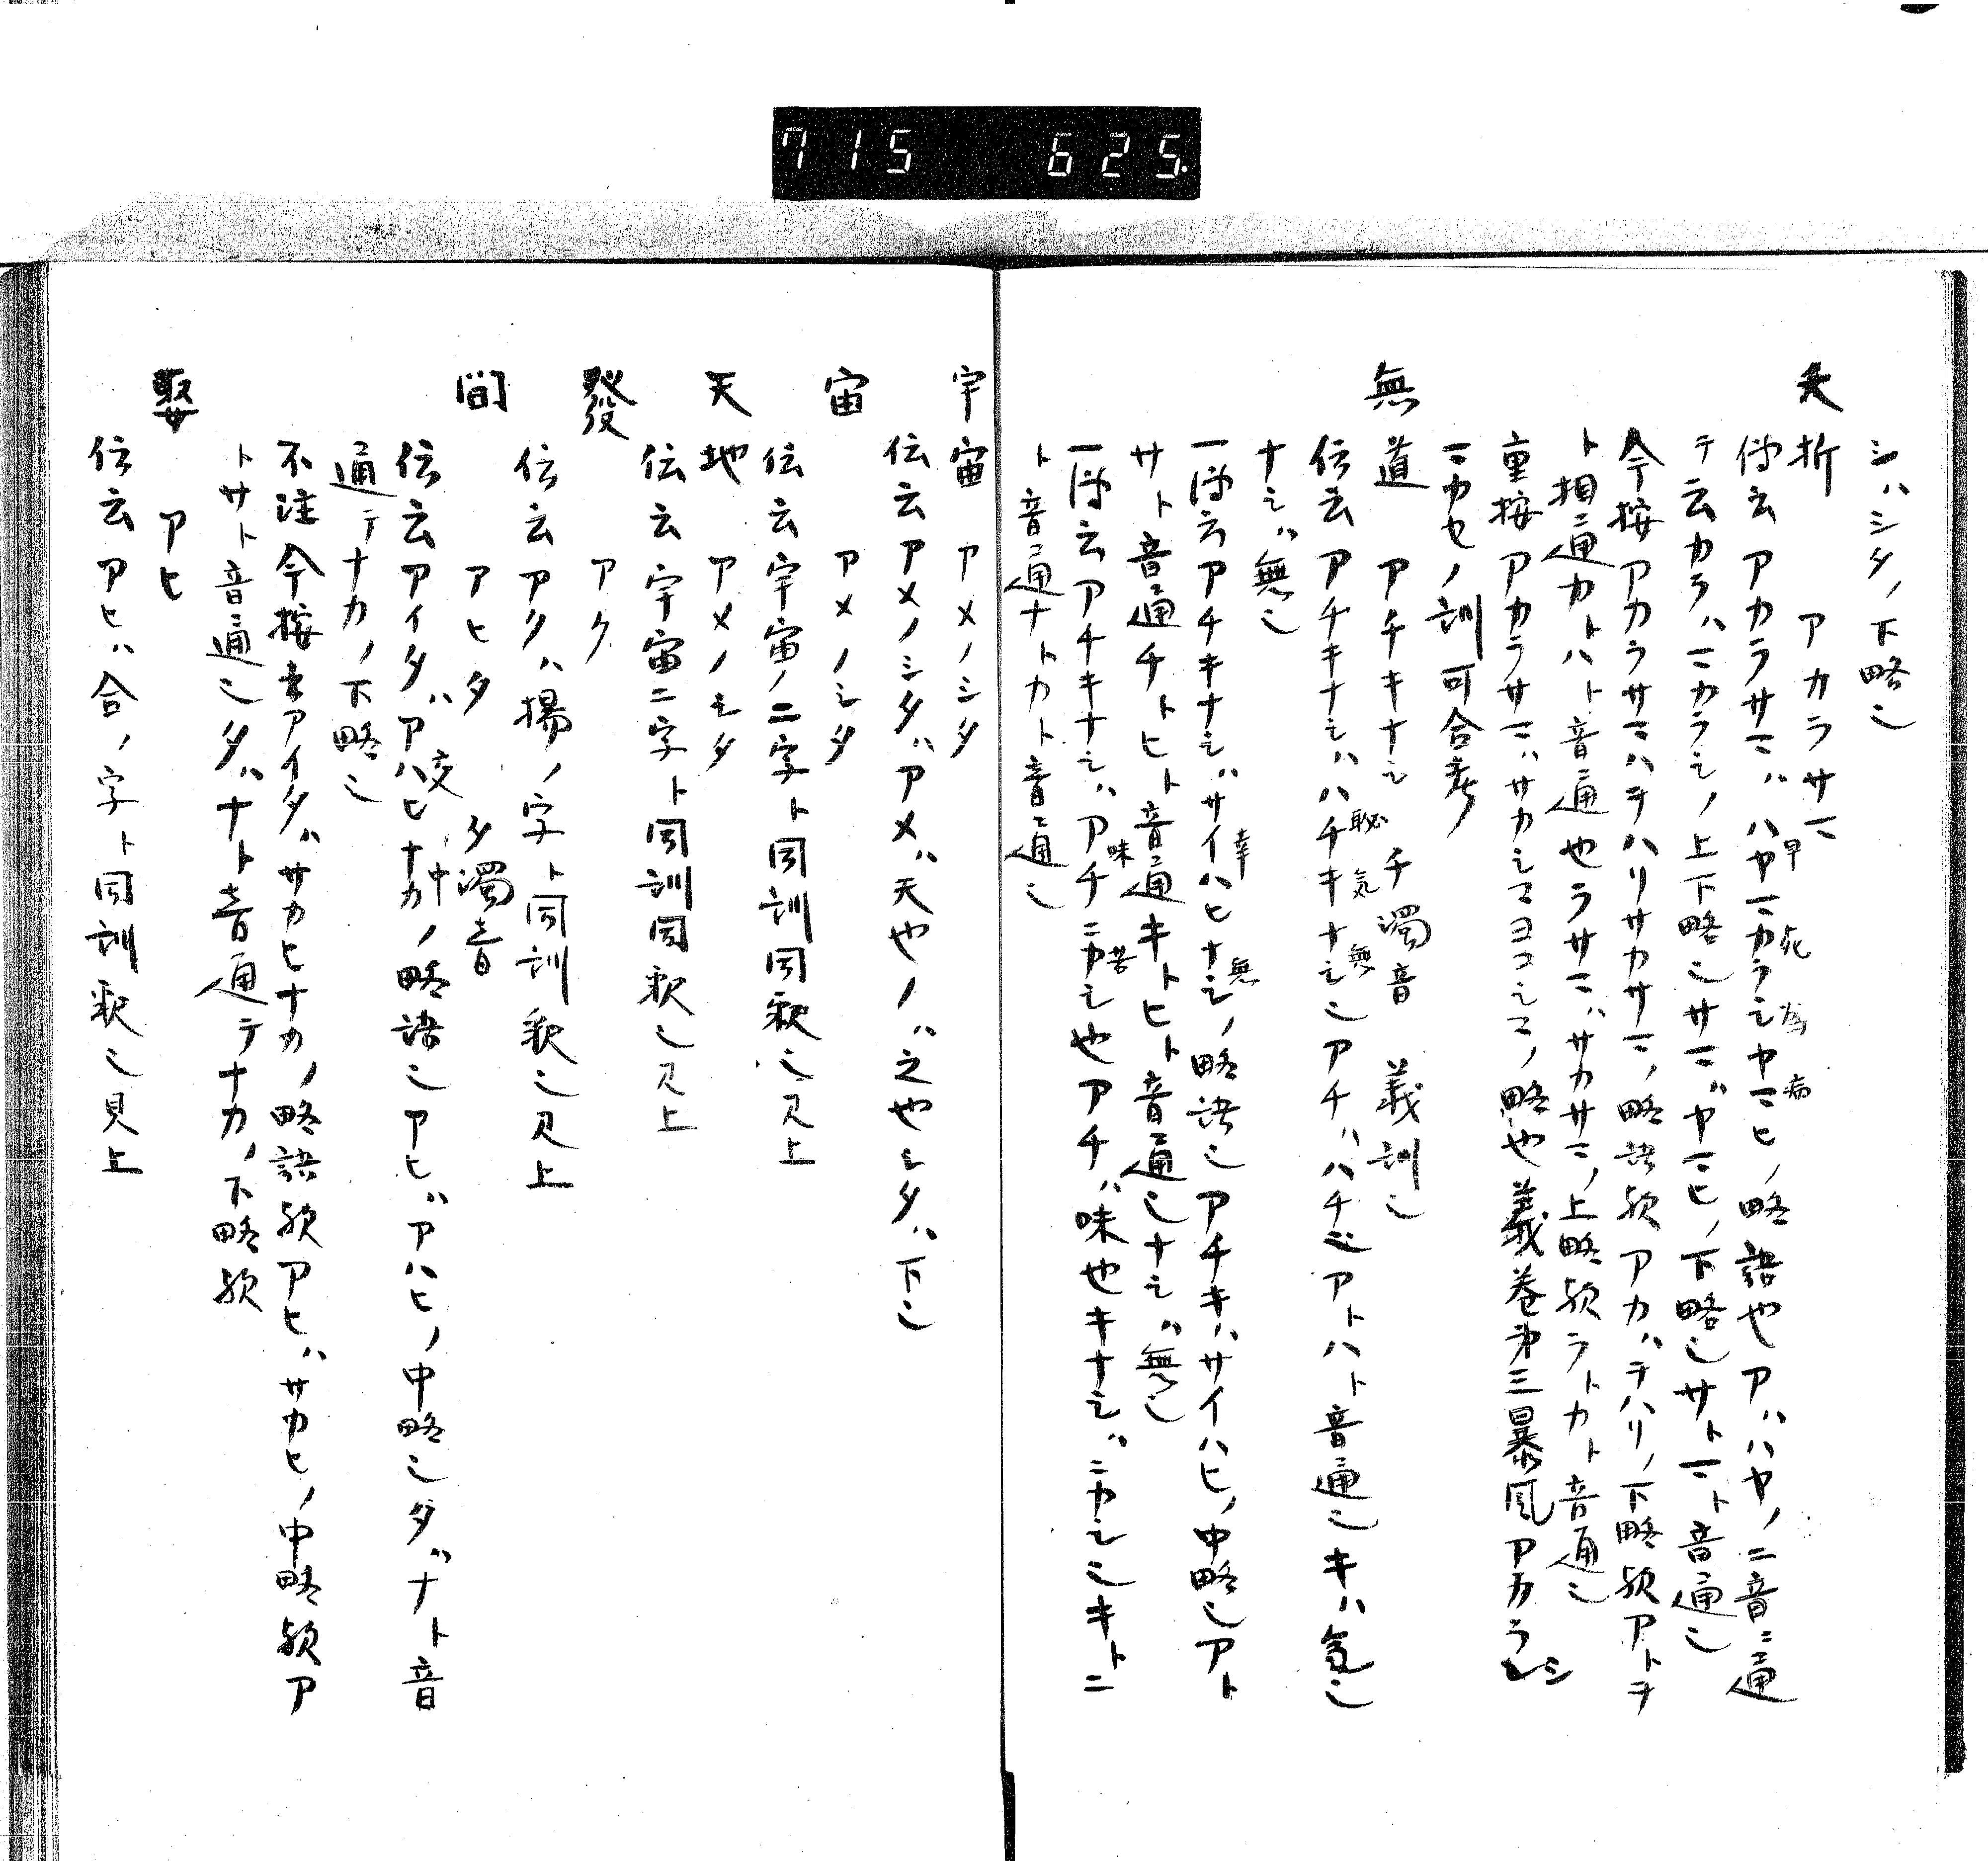 715 625.
シハシタノ下略也
夭折 アカラサマ
伝云アカラサマハハヤマカラシヤマヒノ略語也アハハヤノ二音ニ通
テ云カラハマカラシノ上下略也サマハヤマヒノ下略也サトマト音通也
今按アカラサマハテハリサカサマノ略語歟アカハテハリノ下略歟アトテ
ト相通カトハト音通也ラサマハサカサマノ上略歟ラトカト音通也
重按アカラサマハサカシマヨコシマノ略也義巻第三暴風アカラシ
マカセノ訓可合考
無道 アチキナシ チ濁音 義訓也
伝云アチキナシハハチキナシ也アチハハチ也アトハト音通也キハ気也
ナシハ無也
一伝云アチキナシハサイハヒナシノ略語也アチキハサイハヒノ中略也アト
サト音通チトヒト音通キトヒト音通也ナシハ無也
一伝云アチキナシハアチニカシ也アチハ味也キナシハニカシ也キトニ
ト音通ナトカト音通也
宇宙 アメノシタ
伝云アメノシタハアメハ天也ノハ之也シタハ下也
宙 アメノシタ
伝云宇宙ノ二字ト同訓同釈也見上
天地 アメノシタ
伝云宇宙二字ト同訓同釈也見上
發 アク
伝云アクハ揚ノ字ト同訓釈也見上
間 アヒタ タ濁音
伝云アイタハアハヒナカノ略語也アヒハアハヒノ中略也タハナト音
通テナカノ下略也
不注今按去アイタハサカヒナカノ略語歟アヒハサカヒノ中略歟ア
トサト音通也タハナト音通テナカノ下略歟
娶 アヒ
伝云アヒハ合ノ字ト同訓釈也見上